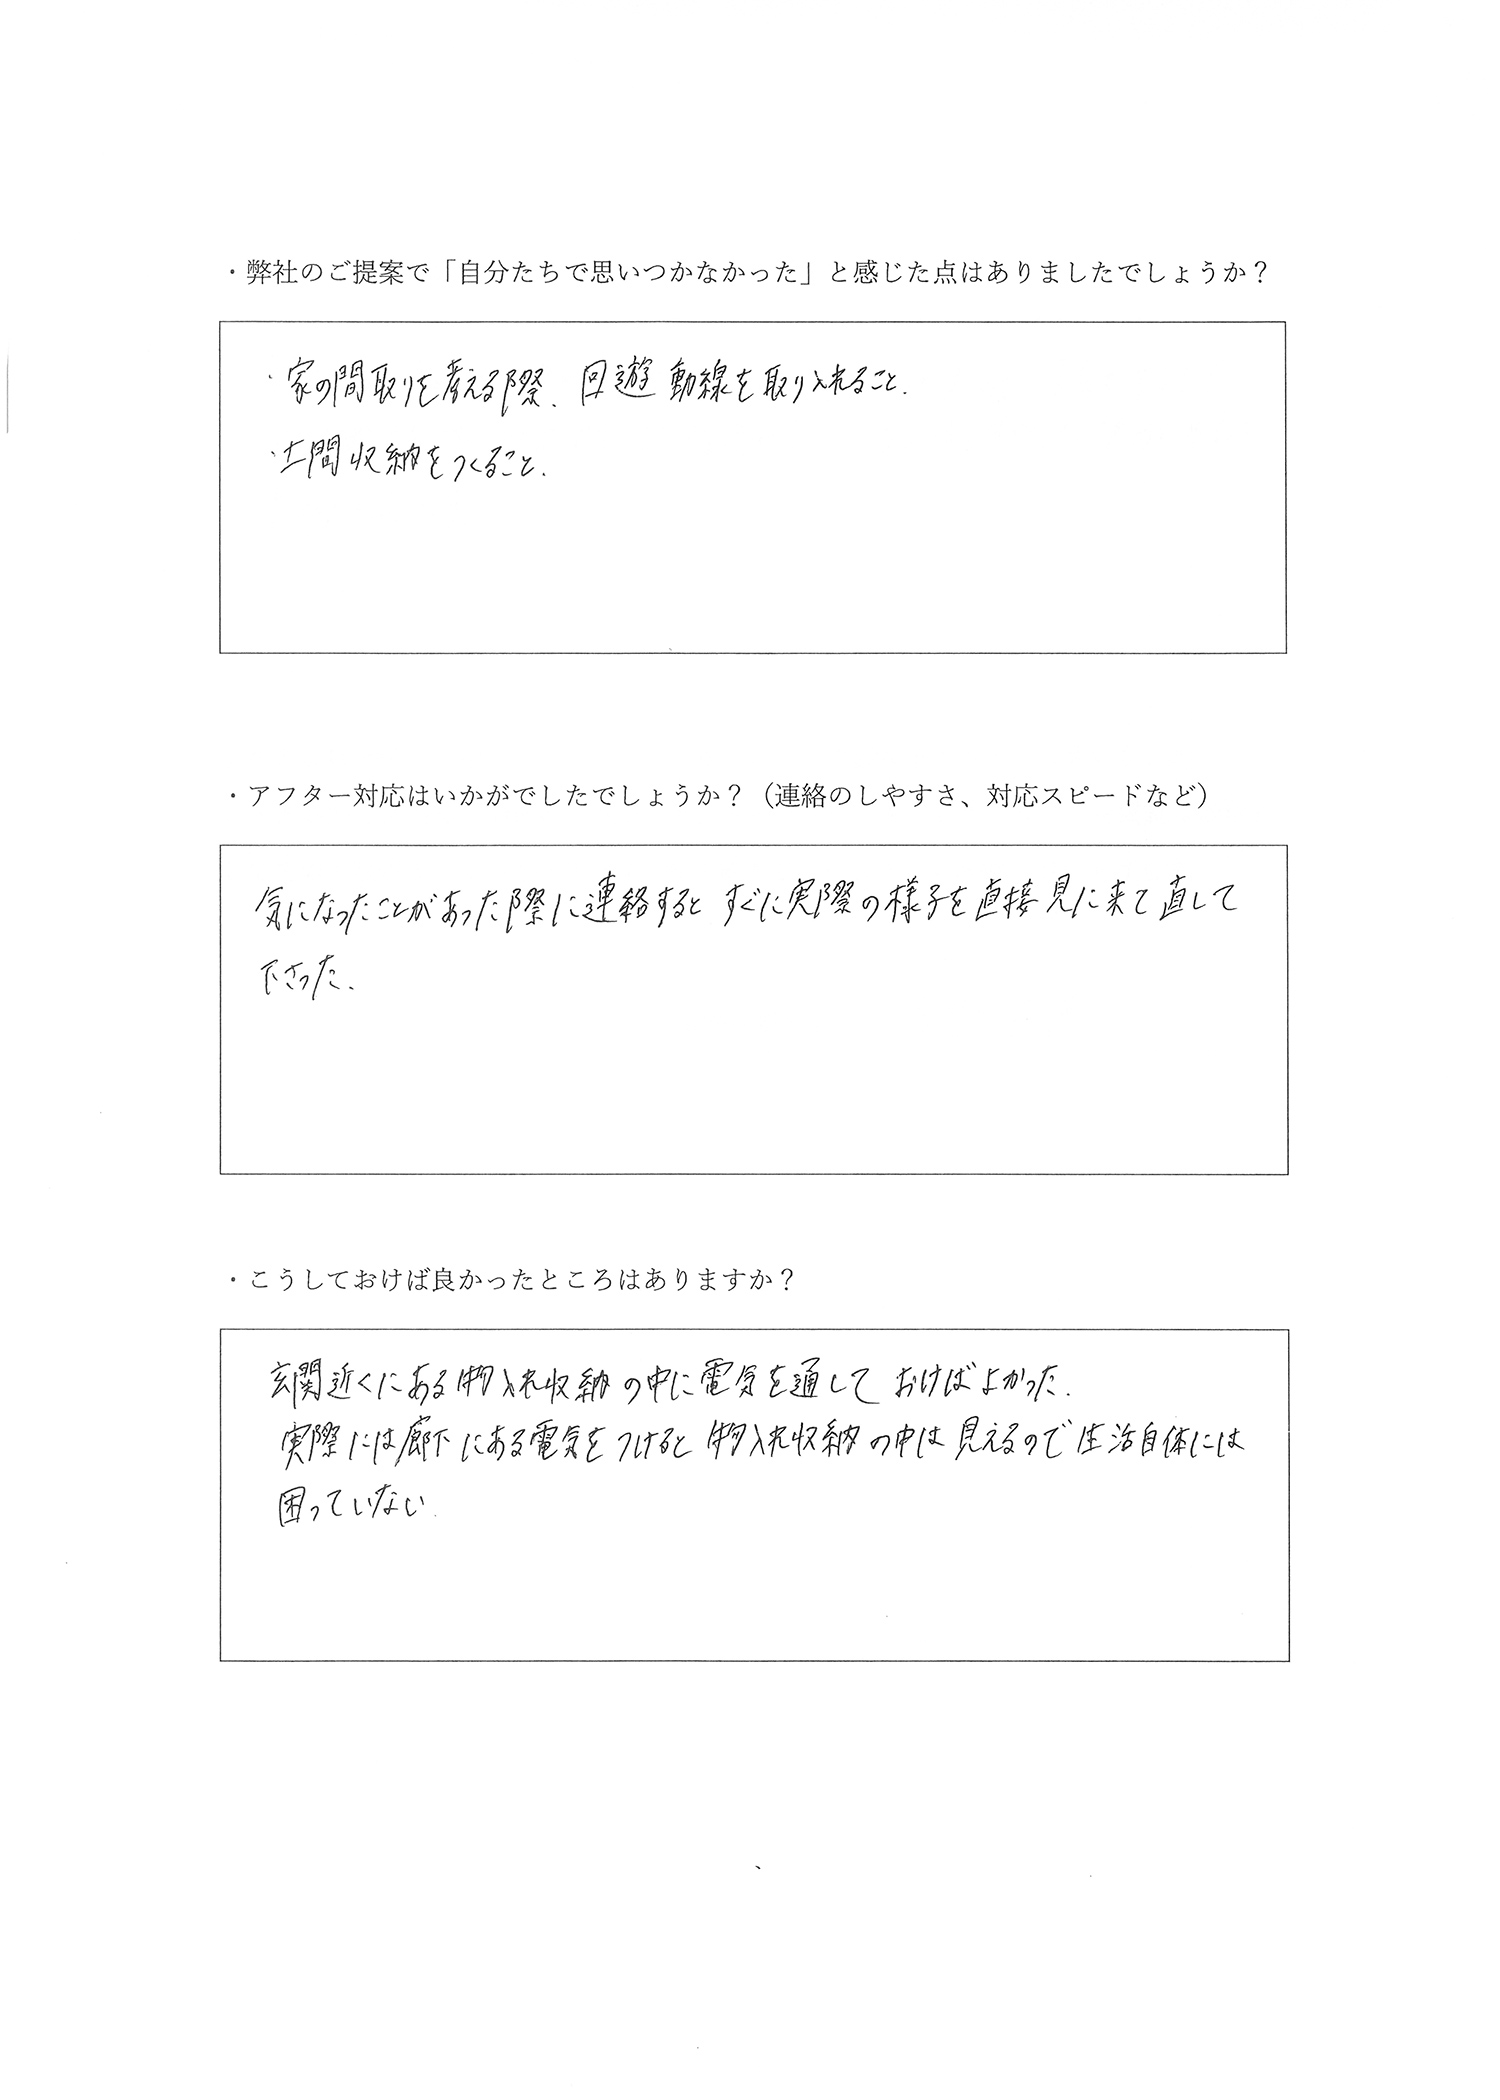 ・弊社のご提案で「自分たちで思いつかなかった」と感じた点はありましたでしょうか？
・家の間取りを考える際、回遊動線を取り入れること.
・土間収納をつくること.
・アフター対応はいかがでしたでしょうか？（連絡のしやすさ、対応スピードなど）
気になったことがあった際に連絡すると すぐに実際の様子を直接見に来て直して
下さった.
・こうしておけば良かったところはありますか？
玄関近くにある物入れ収納の中に電気を通して おけばよかった.
実際には廊下にある電気をつけると物入れ収納の中は見えるので生活自体には
困っていない.